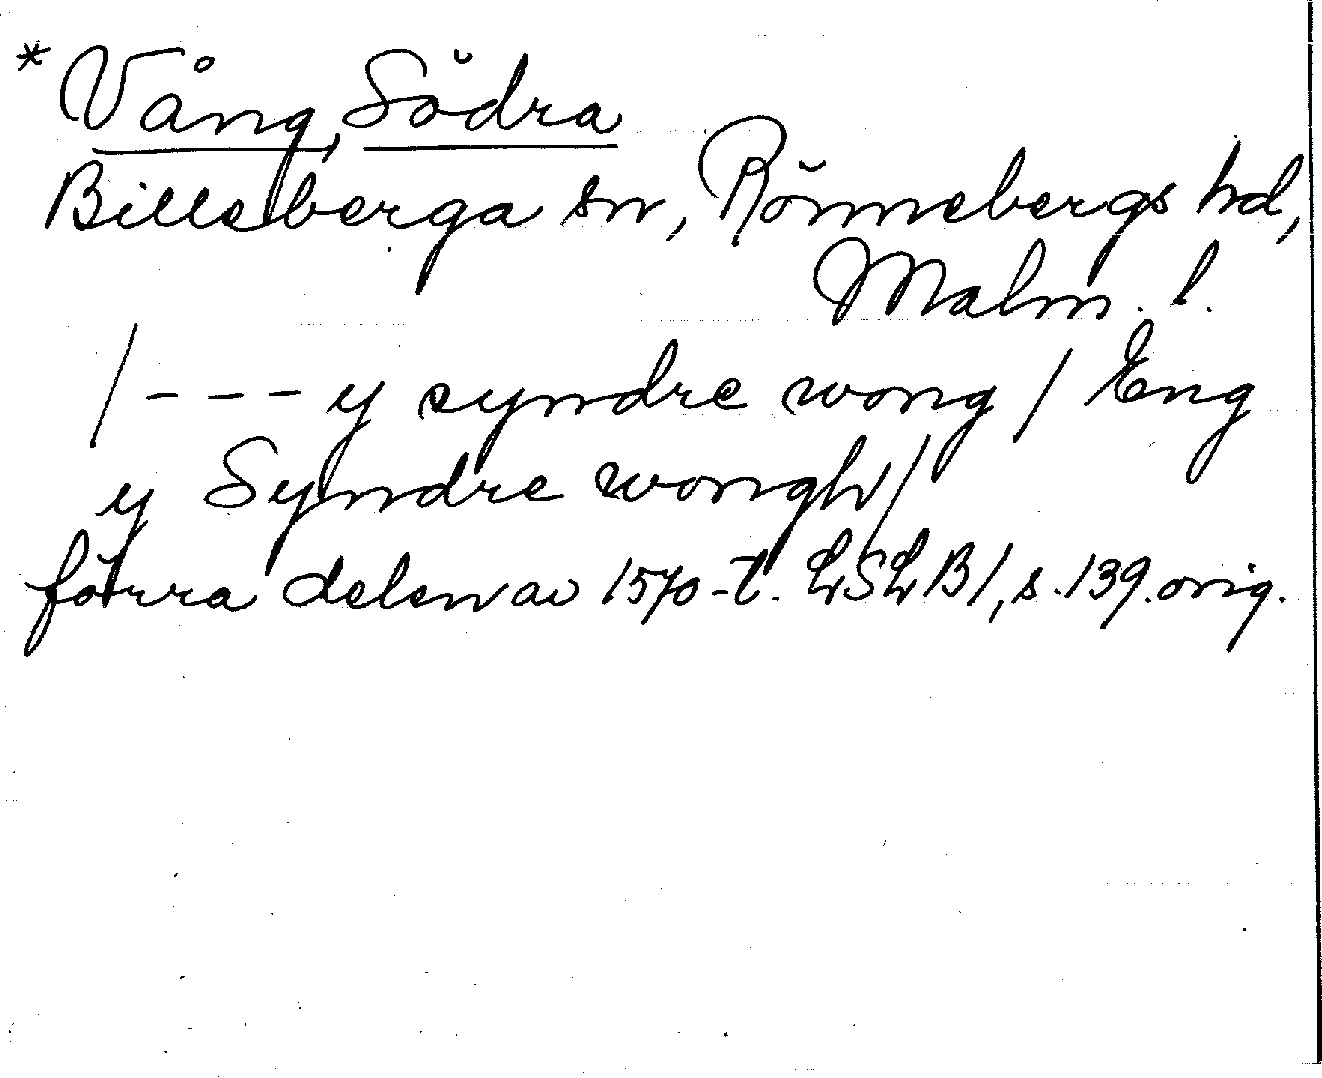 * Vång, Södra
Billeberga sn, Rönnebergs hd,
Malm. l.
/ - - - y syndre wong / Eng
y Syndre wongh /
förra delen av 1570-t. LSLB 1, s. 139. orig.